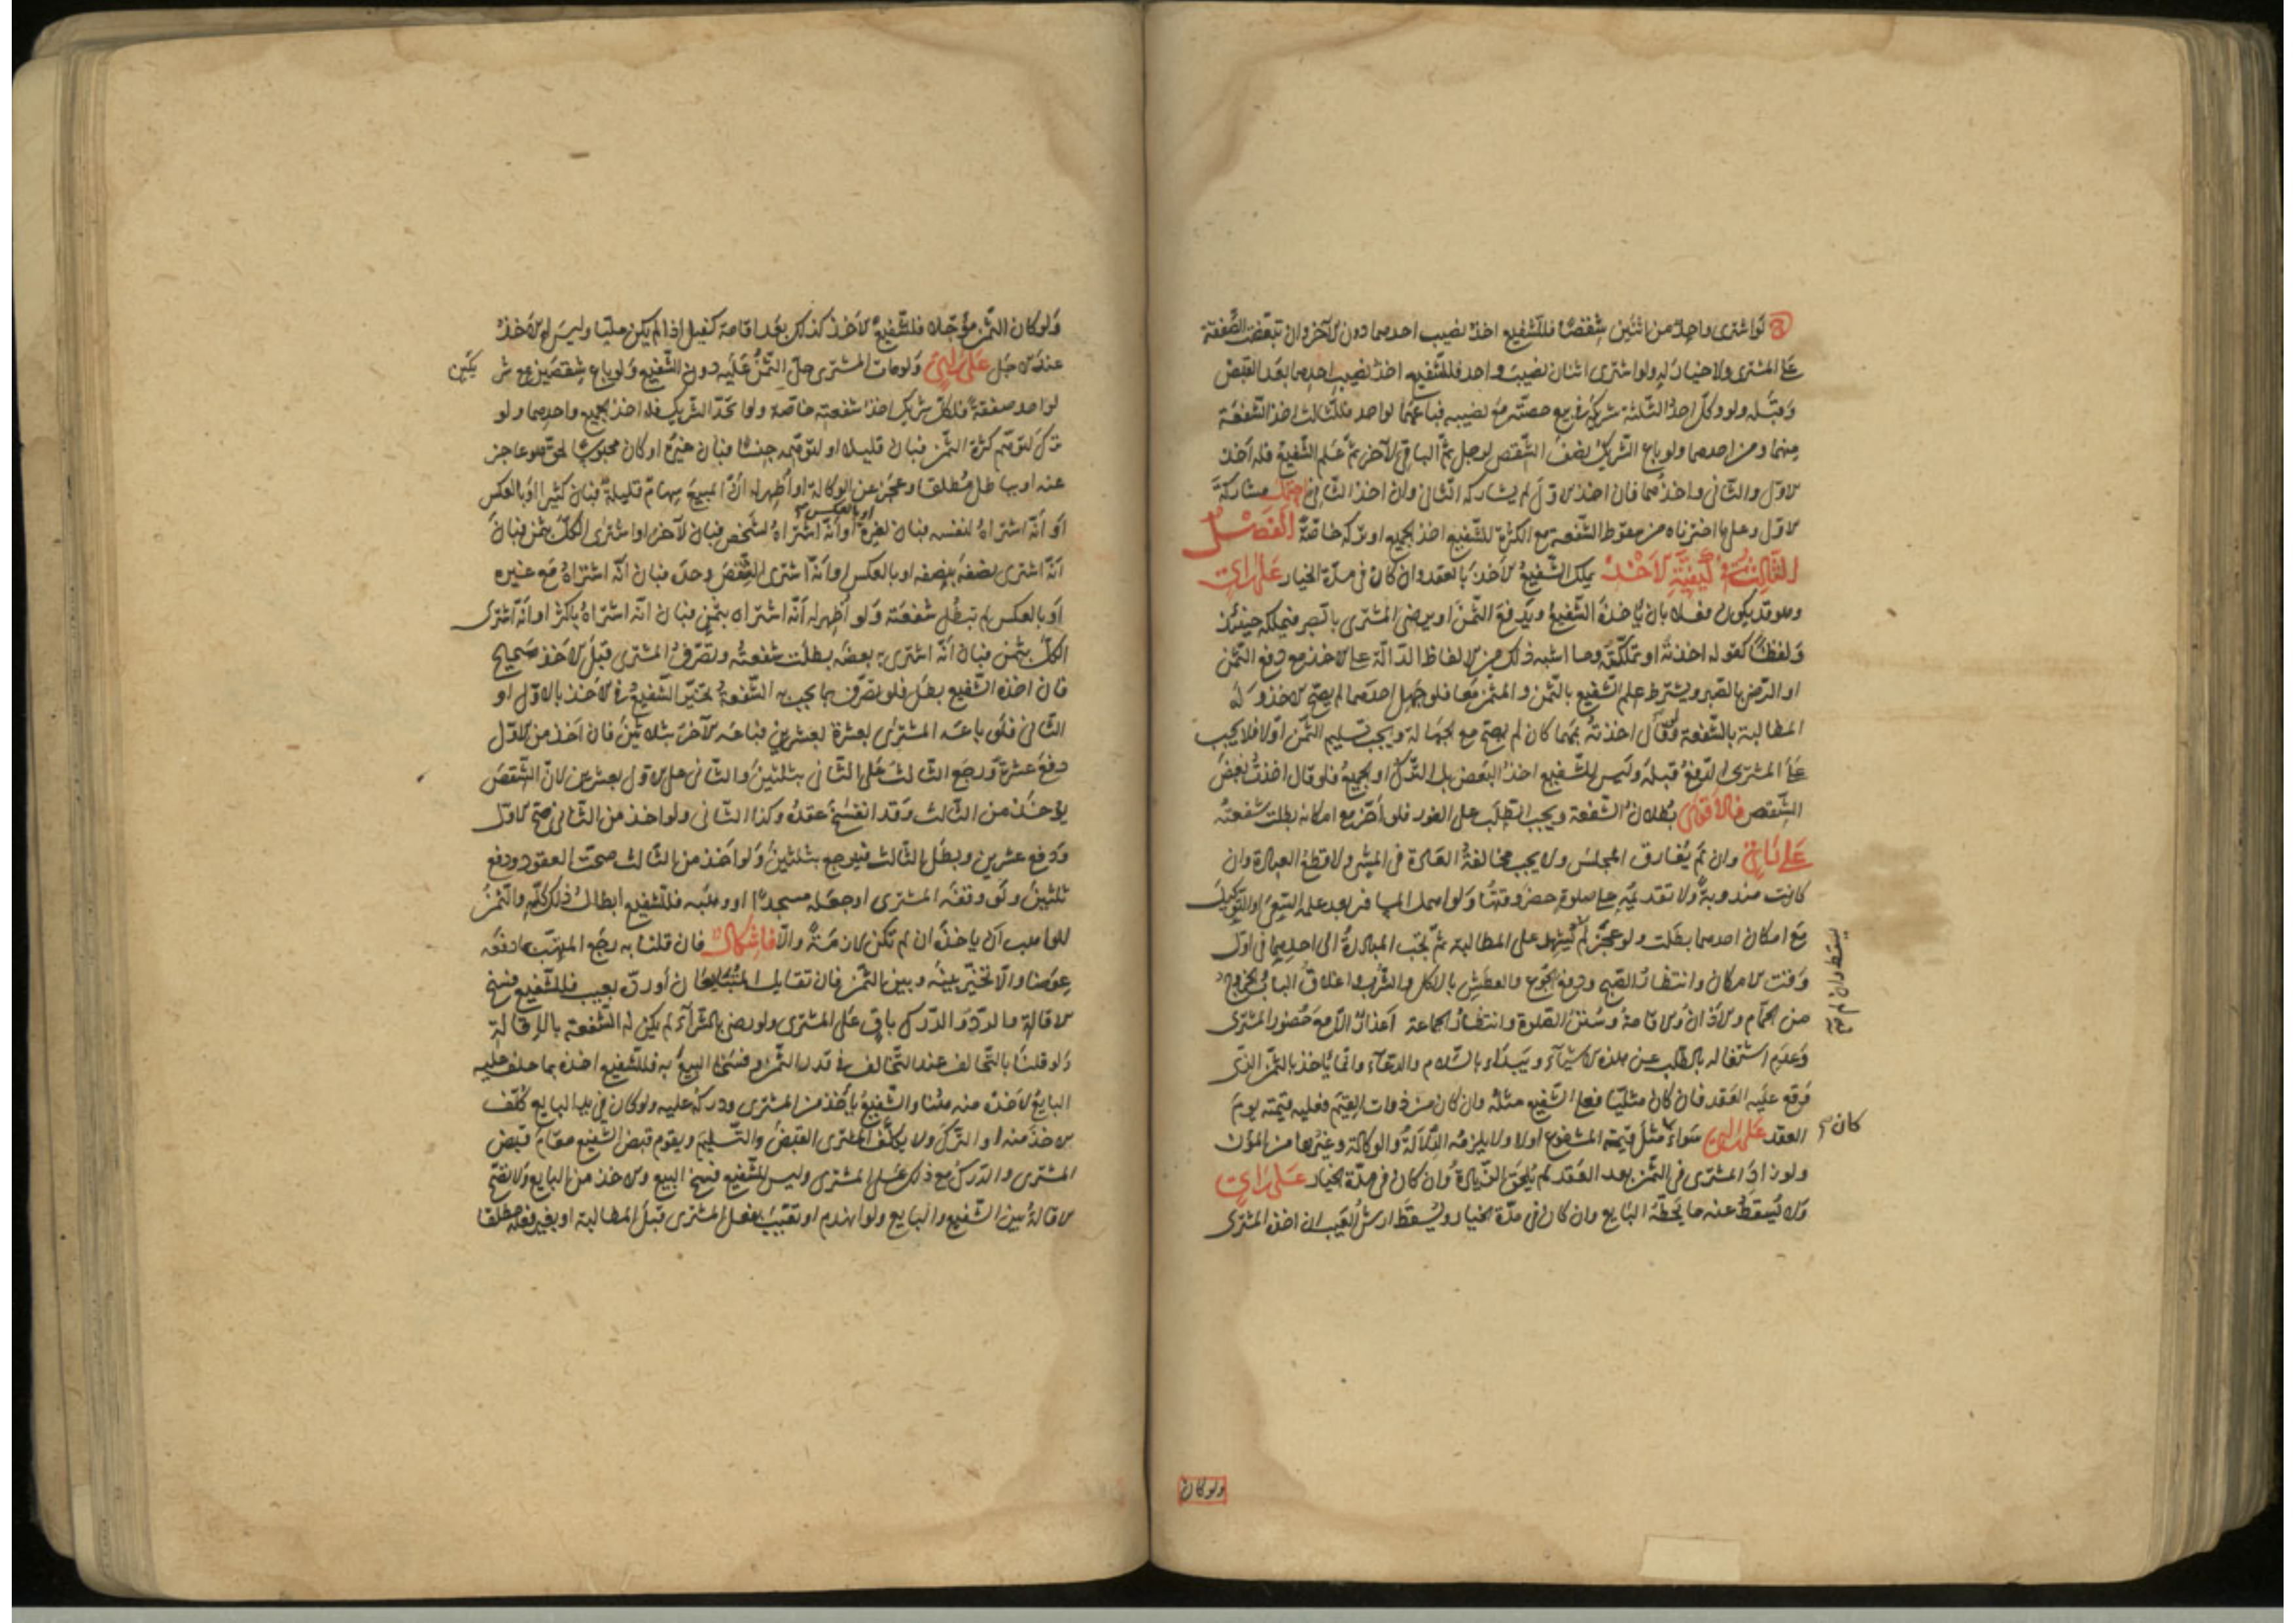 لو اشترى واحد من اثنين شقصًا فللشفيع اخذ نصيب احدهما دون الآخر وان تبعّضت الصّفقة
على المشترى ولا خيار له ولو اشترى اثنان نصيب واحد فللشفيع اخذ نصيب احدهما بعد القبض
وقبله ولو وكّل احد الثلثة شريكه فى بيع حصته مع نصيبه فباعهما لواحد فللثالث اخذ الشفعة
منهما ومن احدهما ولو باع الشريك نصف الشقص لرجل ثم الباقى لآخر ثم علم الشفيع فله اخذ
الاول والثانى واحدهما فان اخذ الاول لم يشاركه الثانى وان اخذ الثانى احتمل مشاركة
الاول وعلى ما اخترناه من سقوط الشفعة مع الكثرة للشفيع اخذ الجميع او تركه خاصّة الفصل
الثالث فى كيفيّة الاخذ يملك الشفيع الاخذ بالعقد وان كان فى مدّة الخيار على راى
وهو قد يكون فعلا بان ياخذه الشفيع ويدفع الثمن او يرضى المشترى بالصبر فيملكه حينئذ
ولفظًا كقوله اخذته او تملّكته وما اشبه ذلك من الالفاظ الدالّة على الاخذ مع دفع الثمن
او الرضى بالصبر ويشترط علم الشفيع بالثمن والمثمن معا فلو جهل احدهما لم يصحّ الاخذ وله
المطالبة بالشفعة ولو قال اخذته بمهما كان لم يصح مع الجهالة ويجب تسليم الثمن اولا فلا يجب
على المشترى الدفع قبله وليس للشفيع اخذ البعض بل الترك او الجميع فلو قال اخذت بعض
الشقص فالاقوى بطلان الشفعة ويجب الطلب على الفور فلو اخّر مع امكانه بطلت شفعته
على راى وان لم يفارق المجلس ولا يجب مخالفة العادة فى المشى ولا قطع العبادة وان
كانت مندوبة ولا تقديمه على صلوة حضر وقتها ولو اهمل المسافر بعد علمه السعى او التوكيل
مع امكان احدهما بطلت ولو عجز لم يشهد على المطالبة ثم تجب المبادرة الى احدهما فى اول
وقت الامكان وانتظار الصبح ودفع الجوع والعطش بالاكل والشرب واغلاق الباب والخروج
من الحمّام والاذان والاقامة وسنن الصلوة وانتظار الجماعة اعذار الّا مع حضور المشترى
وعدم اشتغاله بالطلب عن هذه الاشياء ويبدأ بالسلام والدعاء وانما ياخذ بالثمن الذى
وقع عليه العقد فان كان مثليّا فعلى الشفيع مثله وان كان من ذوات القيم فعليه قيمته يوم
العقد على راى سواء مثل قيمة المشفوع اولا ولا يلزمه الدلالة والوكالة وغيرها من المؤن
ولو زاد المشترى فى الثمن بعد العقد لم يلحق الزيادة وان كان فى مدّة الخيار على راى
ولا يسقط عنه ما يحطّه البايع وان كان فى مدّة الخيار ويسقط ارش العيب ان اخذه المشترى
كان صح
ولو كان
ولو كان الثمن مؤجّلا فللشفيع الاخذ كذلك بعد اقامة كفيل اذا لم يكن مليّا وليس له الاخذ
عند الاجل على راى ولو مات المشترى حلّ الثمن عليه دون الشفيع ولو باع شقصين مع شر
يكين
لواحد صفقة فلكلّ شريك اخذ شفعته خاصّة ولو اتحد الشريك فله اخذ الجميع واحدهما ولو
ترك لتوهّم كثرة الثمن فبان قليلا او لتوهّمه جنسًا فبان غيره او كان محبوسًا بحق هو عاجز
عنه او بباطل مطلقا وعجز عن الوكالة او اظهر له انّ المبيع سهام قليلة فبان كثيرا او بالعكس
او بالعكس صح
او انّه اشتراه لنفسه فبان لغيره او انّه اشتراه لشخص فبان لآخر او اشترى الكلّ بثمن فبان
انّه اشترى نصفه بنصفه او بالعكس او انّه اشترى الشقص وحده فبان انّه اشتراه مع غيره
او بالعكس لم تبطل شفعته ولو اظهر له انّه اشتراه بثمن فبان انّه اشتراه باكثر او انّه اشترى
الكلّ بثمن فبان انّه اشترى به بعضه بطلت شفعته وتصرّف المشترى قبل الاخذ صحيح
فان اخذه الشفيع بطل فلو تصرّف بما يجب به الشفعة تخيّر الشفيع فى الاخذ بالاوّل او
الثانى فلو باعه المشترى بعشرة بعشرين فباعه الآخر بثلاثين فان اخذ من الاول
دفع عشرة ورجع الثالث على الثانى بثلثين والثانى على الاول بعشرين لانّ الشقص
يؤخذ من الثالث وقد انفسخ عقده وكذا الثانى ولو اخذ من الثانى صحّ الاول
ودفع عشرين وبطل الثالث فيرجع بثلثين ولو اخذ من الثالث صحت العقود ودفع
ثلثين ولو وقفه المشترى او جعله مسجدًا او وهبه فللشفيع ابطال ذلك كلّه والثمن
للواهب ان ياخذه ان لم تكن لازمة والّا فاشكال فان قلنا به رجع المتّهب بما دفعه
عوضا والّا تخيّر بينه وبين الثمن فان تقايل المتبايعان او ردّ بعيب فللشفيع فسخ
الاقالة والردّ والدرك باق على المشترى ولو رضى بالشراء لم يكن له الشفعة بالاقالة
ولو قلنا بالتحالف عند التخالف فى قدر الثمن وفسخنا البيع به فللشفيع اخذه بما حلف عليه
البايع لاخذه منه هنا والشفيع ياخذ من المشترى ودركه عليه ولو كان فى يد البايع كلّف
الاخذ منه او الترك ولا يكلّف المشترى القبض والتسليم ويقوم قبض الشفيع مقام قبض
المشترى والدرك مع ذلك على المشترى وليس للشفيع فسخ البيع والاخذ من البايع ولا تصحّ
الاقالة بين الشفيع والبايع ولو انهدم او تعيّب بفعل المشترى قبل المطالبة او بغير فعله مطلقا